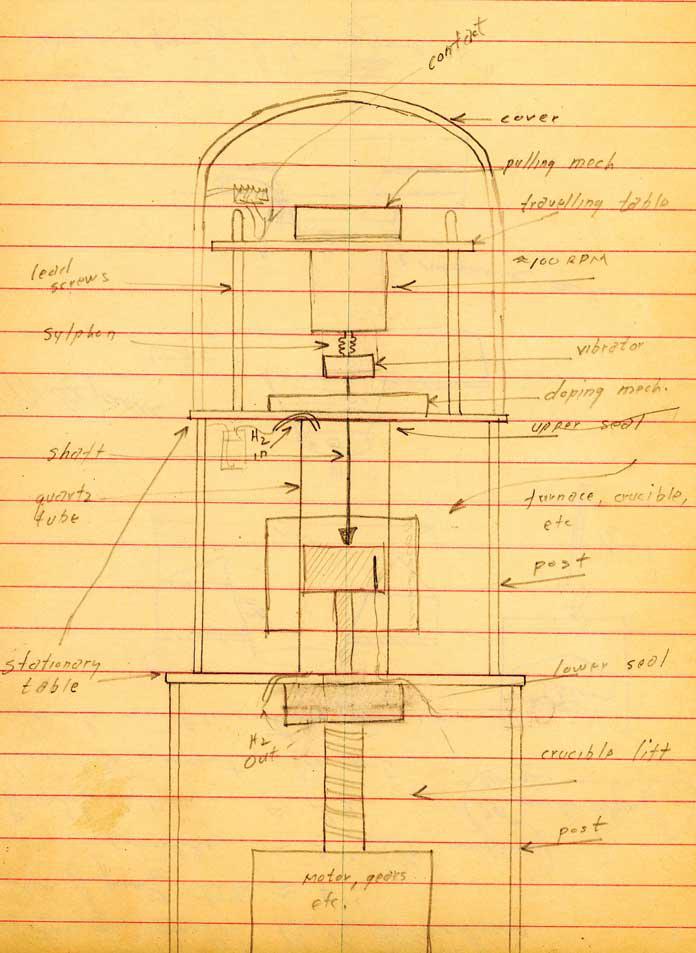 contact
cover
pulling mech
travelling table
≈100 RPM
lead
screws
sylphon
vibrator
doping mech.
upper seal
H2
in
shaft
quartz
tube
furnace, crucible,
etc
post
stationary
table
lower seal
H2
out
crucible lift
post
Motor, gears
etc.